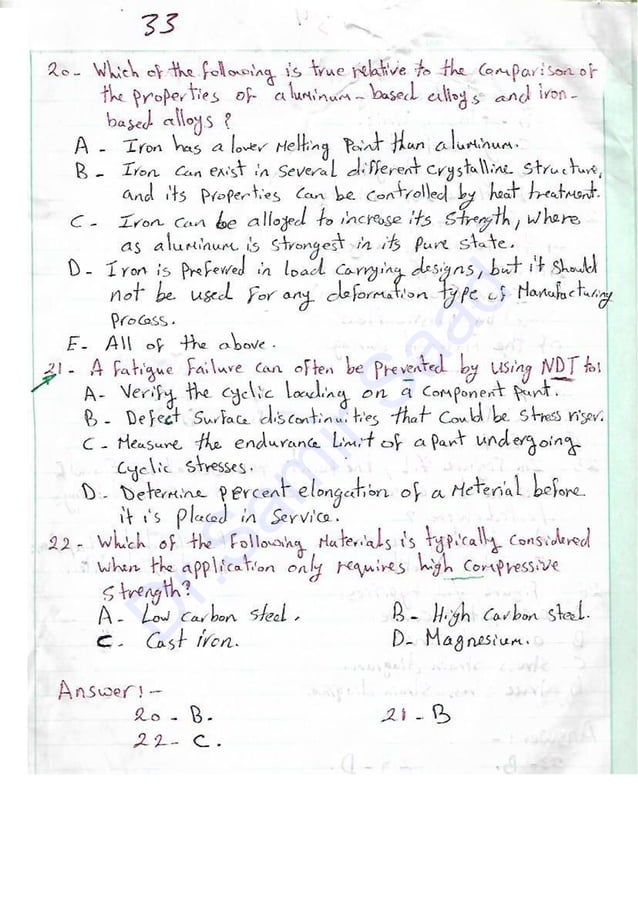 33
20- Which of the following is true relative to the comparison of
the properties of aluminum-based alloys and iron-
based alloys?
A - Iron has a lower Melting Point than aluminum.
B - Iron can exist in several different crystalline structure,
and its properties can be controlled by heat treatment.
C - Iron can be alloyed to increase its strength, where
as aluminum is strongest in its pure state.
D - Iron is preferred in load carrying designs, but it should
not be used for any deformation type of Manufacturing
process.
E- All of the above.
21- A fatigue failure can often be prevented by using NDT to:
A- Verify the cyclic loading on a component part.
B - Defect surface discontinuities that could be stress riser.
C - Measure the endurance limit of a part undergoing
cyclic stresses.
D - Determine percent elongation of a Meterial before
it is placed in service.
22- Which of the following Materials is typically considered
when the application only requires high compressive
strength?
A- Low carbon steel. B- High carbon steel.
C. Cast iron. D- Magnesium.
Answer:-
20 - B. 21 - B
22- C.
Dr. Samir Saad